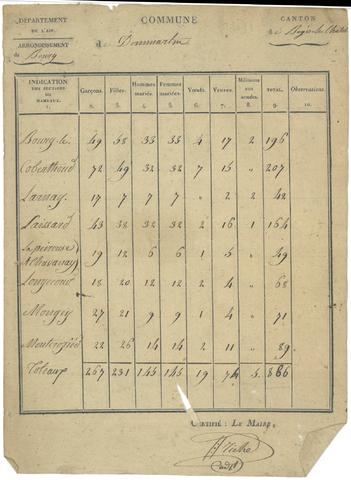 DÉPARTEMENT
DE L'AIN.
ARRONDISSEMENT
de Bourg
COMMUNE
de Dommartin
CANTON
de Bagé-le-Châtel
INDICATION DES SECTIONS OU HAMEAUX. 1. Garçons. 2. Filles. 3. Hommes mariés. 4. Femmes mariées. 5. Veufs. 6. Veuves. 7. Militaires aux armées. 8. TOTAL. 9. Observations. 10.
Bourg-le. 49 58 33 33 4 17 2 196
72 49 32 32 7 15 „ 207
Lannay. 17 7 7 7 „ 2 2 42
Laissard 43 38 32 32 2 16 1 164
19 12 6 6 1 5 „ 49
18 20 12 12 2 4 „ 68
Mongey 27 21 9 9 1 4 „ 71
22 26 14 14 2 11 „ 89
Totaux 267 231 145 145 19 74 5. 886
CERTIFIÉ : LE MAIRE,